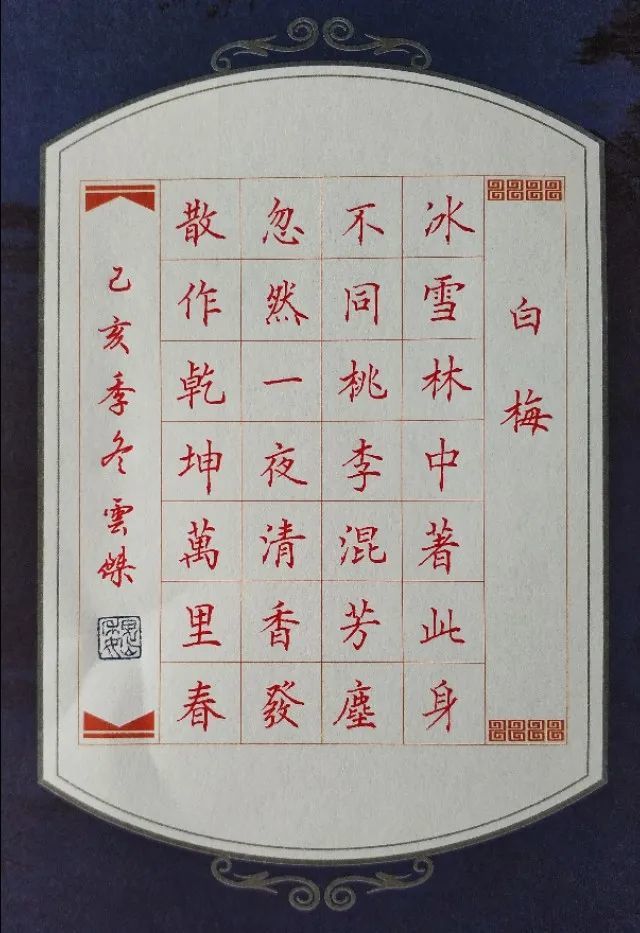 白梅
冰雪林中著此身
不同桃李混芳塵
忽然一夜清香發
散作乾坤萬里春
己亥季冬雲傑